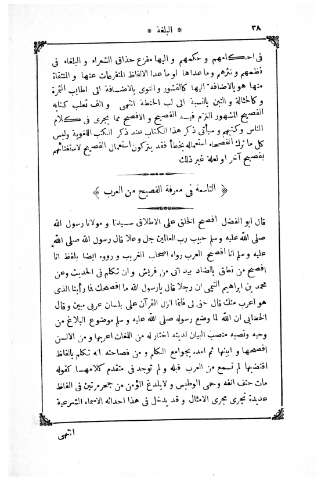 * البلغة * ٣٨
فى احكامهم وحكمهم واليها مفزع حذاق الشعراء والبلغاء فى
نظمهم ونثرهم وما عداها وما عدا الالفاظ المتفرعات عنها والمشتقات
منها هو بالاضافة اليها كالقشور والنوى بالاضافة الى اطايب الثمرة
وكالحثالة والتبن بالنسبة الى لب الحنطة انتهى والف ثعلب كتابه
الفصيح المشهور التزم فيه الفصيح والافصح مما يجرى فى كلام
الناس وكتبهم وسيأتى ذكر هذا الكتاب عند ذكر الكتب اللغوية وليس
كل ما ترك الفصحاء استعماله بخطأ فقد يتركون استعمال الفصيح لاستغنائهم
بفصيح آخر او لعلة غير ذلك
﴿ التاسعة فى معرفة الفصيح من العرب ﴾
قال ابو الفضل افصح الخلق على الاطلاق سيدنا ومولانا رسول الله
صلى الله عليه وسلم حبيب رب العالمين جل وعلا قال رسول الله صلى الله
عليه وسلم انا افصح العرب رواه اصحاب الغريب ورووه ايضا بلفظ انا
افصح من نطق بالضاد بيد انى من قريش وان تكلم فى الحديث وعن
محمد بن ابراهيم التيمى ان رجلا قال يارسول الله ما افصحك فما رأينا الذى
هو اعرب منك قال حق لى فانما انزل القرآن على بلسان عربى مبين وقال
الخطابى ان الله لما وضع رسوله صلى الله عليه وسلم موضع البلاغ من
وحيه ونصبه منصب البيان لدينه اختار له من اللغات اعربها ومن الالسن
افصحها وابينها ثم امده بجوامع الكلم ومن فصاحته انه تكلم بالفاظ
اقتضبها لم تسمع من العرب قبله ولم توجد فى متقدم كلامهما كقوله
مات حتف انفه وحمى الوطيس ولا يلدغ المؤمن من جحر مرتين فى الفاظ
عديدة تجرى مجرى الامثال وقد يدخل فى هذا احداثه الاسماء الشرعية
انتهى